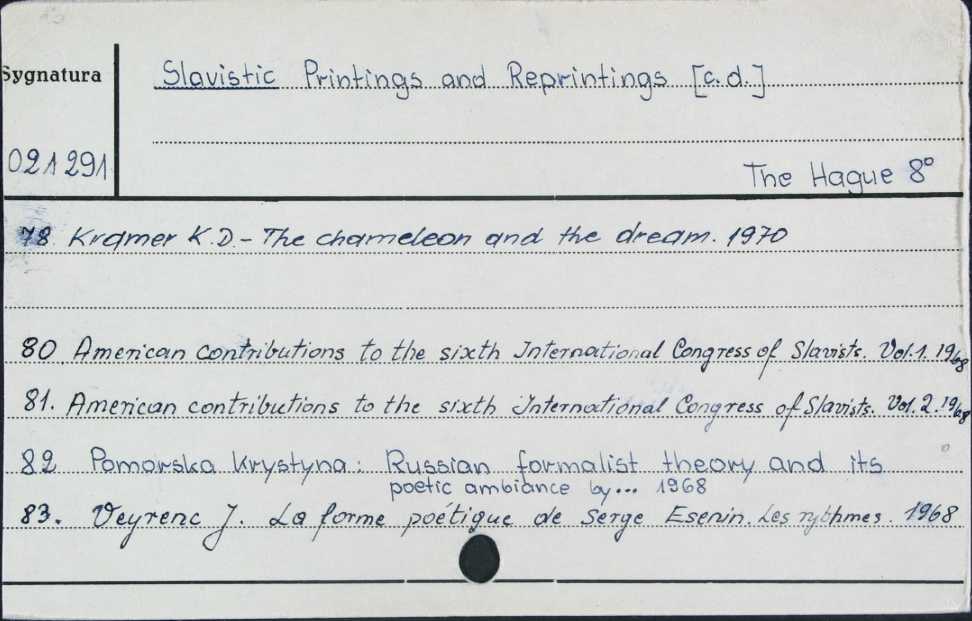 Sygnatura
Slavistic Printings and Reprintings [c.d.]
021291
The Hague 8°
78 Kramer K.D. - The chameleon and the dream. 1970
80 American contributions to the sixth International Congress of Slavists. Vol. 1. 1968
81. American contributions to the sixth International Congress of Slavists. Vol. 2. 1968
82 Pomorska Krystyna: Russian formalist theory and its
poetic ambiance by... 1968
83. Veyrenc J. La forme poétique de Serge Esenin. Les rythmes. 1968